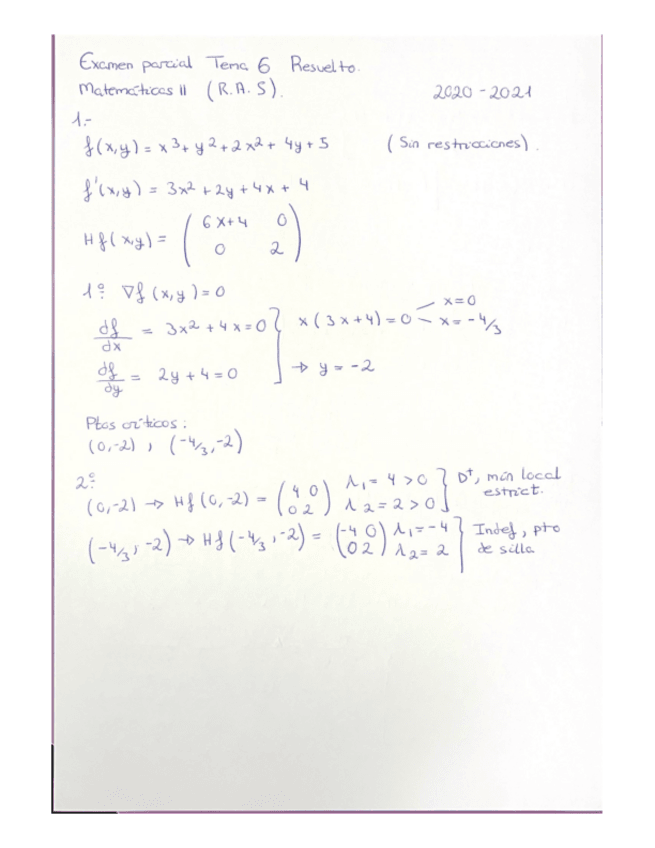 Examen parcial Tema 6 Resuelto.
Matemáticas II (R.A.S). 2020-2021
1.-
f(x,y) = x³ + y² + 2x² + 4y + 5 (Sin restricciones).
f'(x,y) = 3x² + 2y + 4x + 4
Hf(x,y) = ( 6x+4 0
0 2 )
1º: ∇f(x,y) = 0
df/dx = 3x² + 4x = 0 } x(3x+4) = 0 x = 0
x = -4/3
df/dy = 2y + 4 = 0 → y = -2
Ptos críticos:
(0,-2), (-4/3,-2)
2º:
(0,-2) → Hf(0,-2) = (4 0 λ₁ = 4 > 0 } D⁺, mín local
0 2) λ₂ = 2 > 0 estrict.
(-4/3,-2) → Hf(-4/3,-2) = (-4 0 λ₁ = -4 } Indef, pto
0 2) λ₂ = 2 de silla